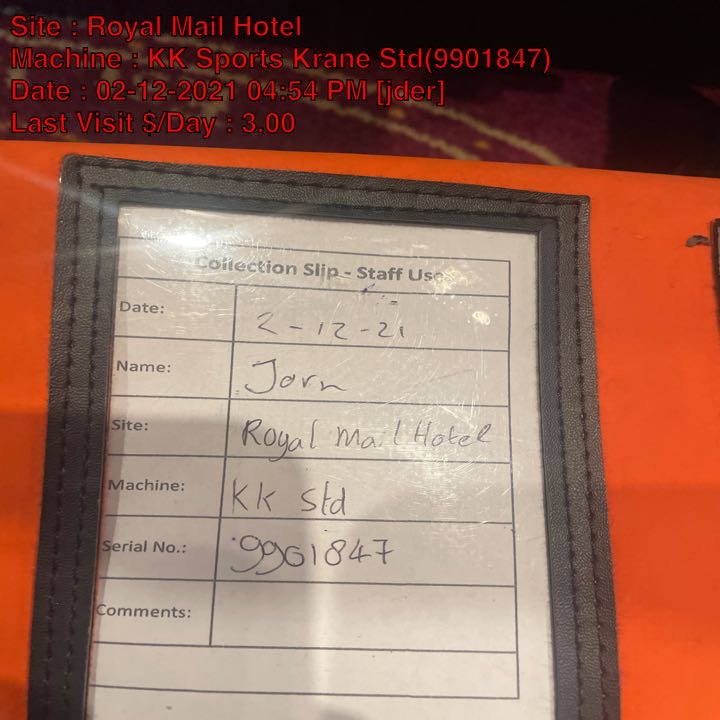 Site : Royal Mail Hotel
Machine : KK Sports Krane Std(9901847)
Date : 02-12-2021 04:54 PM [jder]
Last Visit $/Day : 3.00
Collection Slip - Staff Use
Date: 2-12-21
Name: Jorn
Site: Royal Mail Hotel
Machine: KK Std
Serial No.: 9901847
Comments: